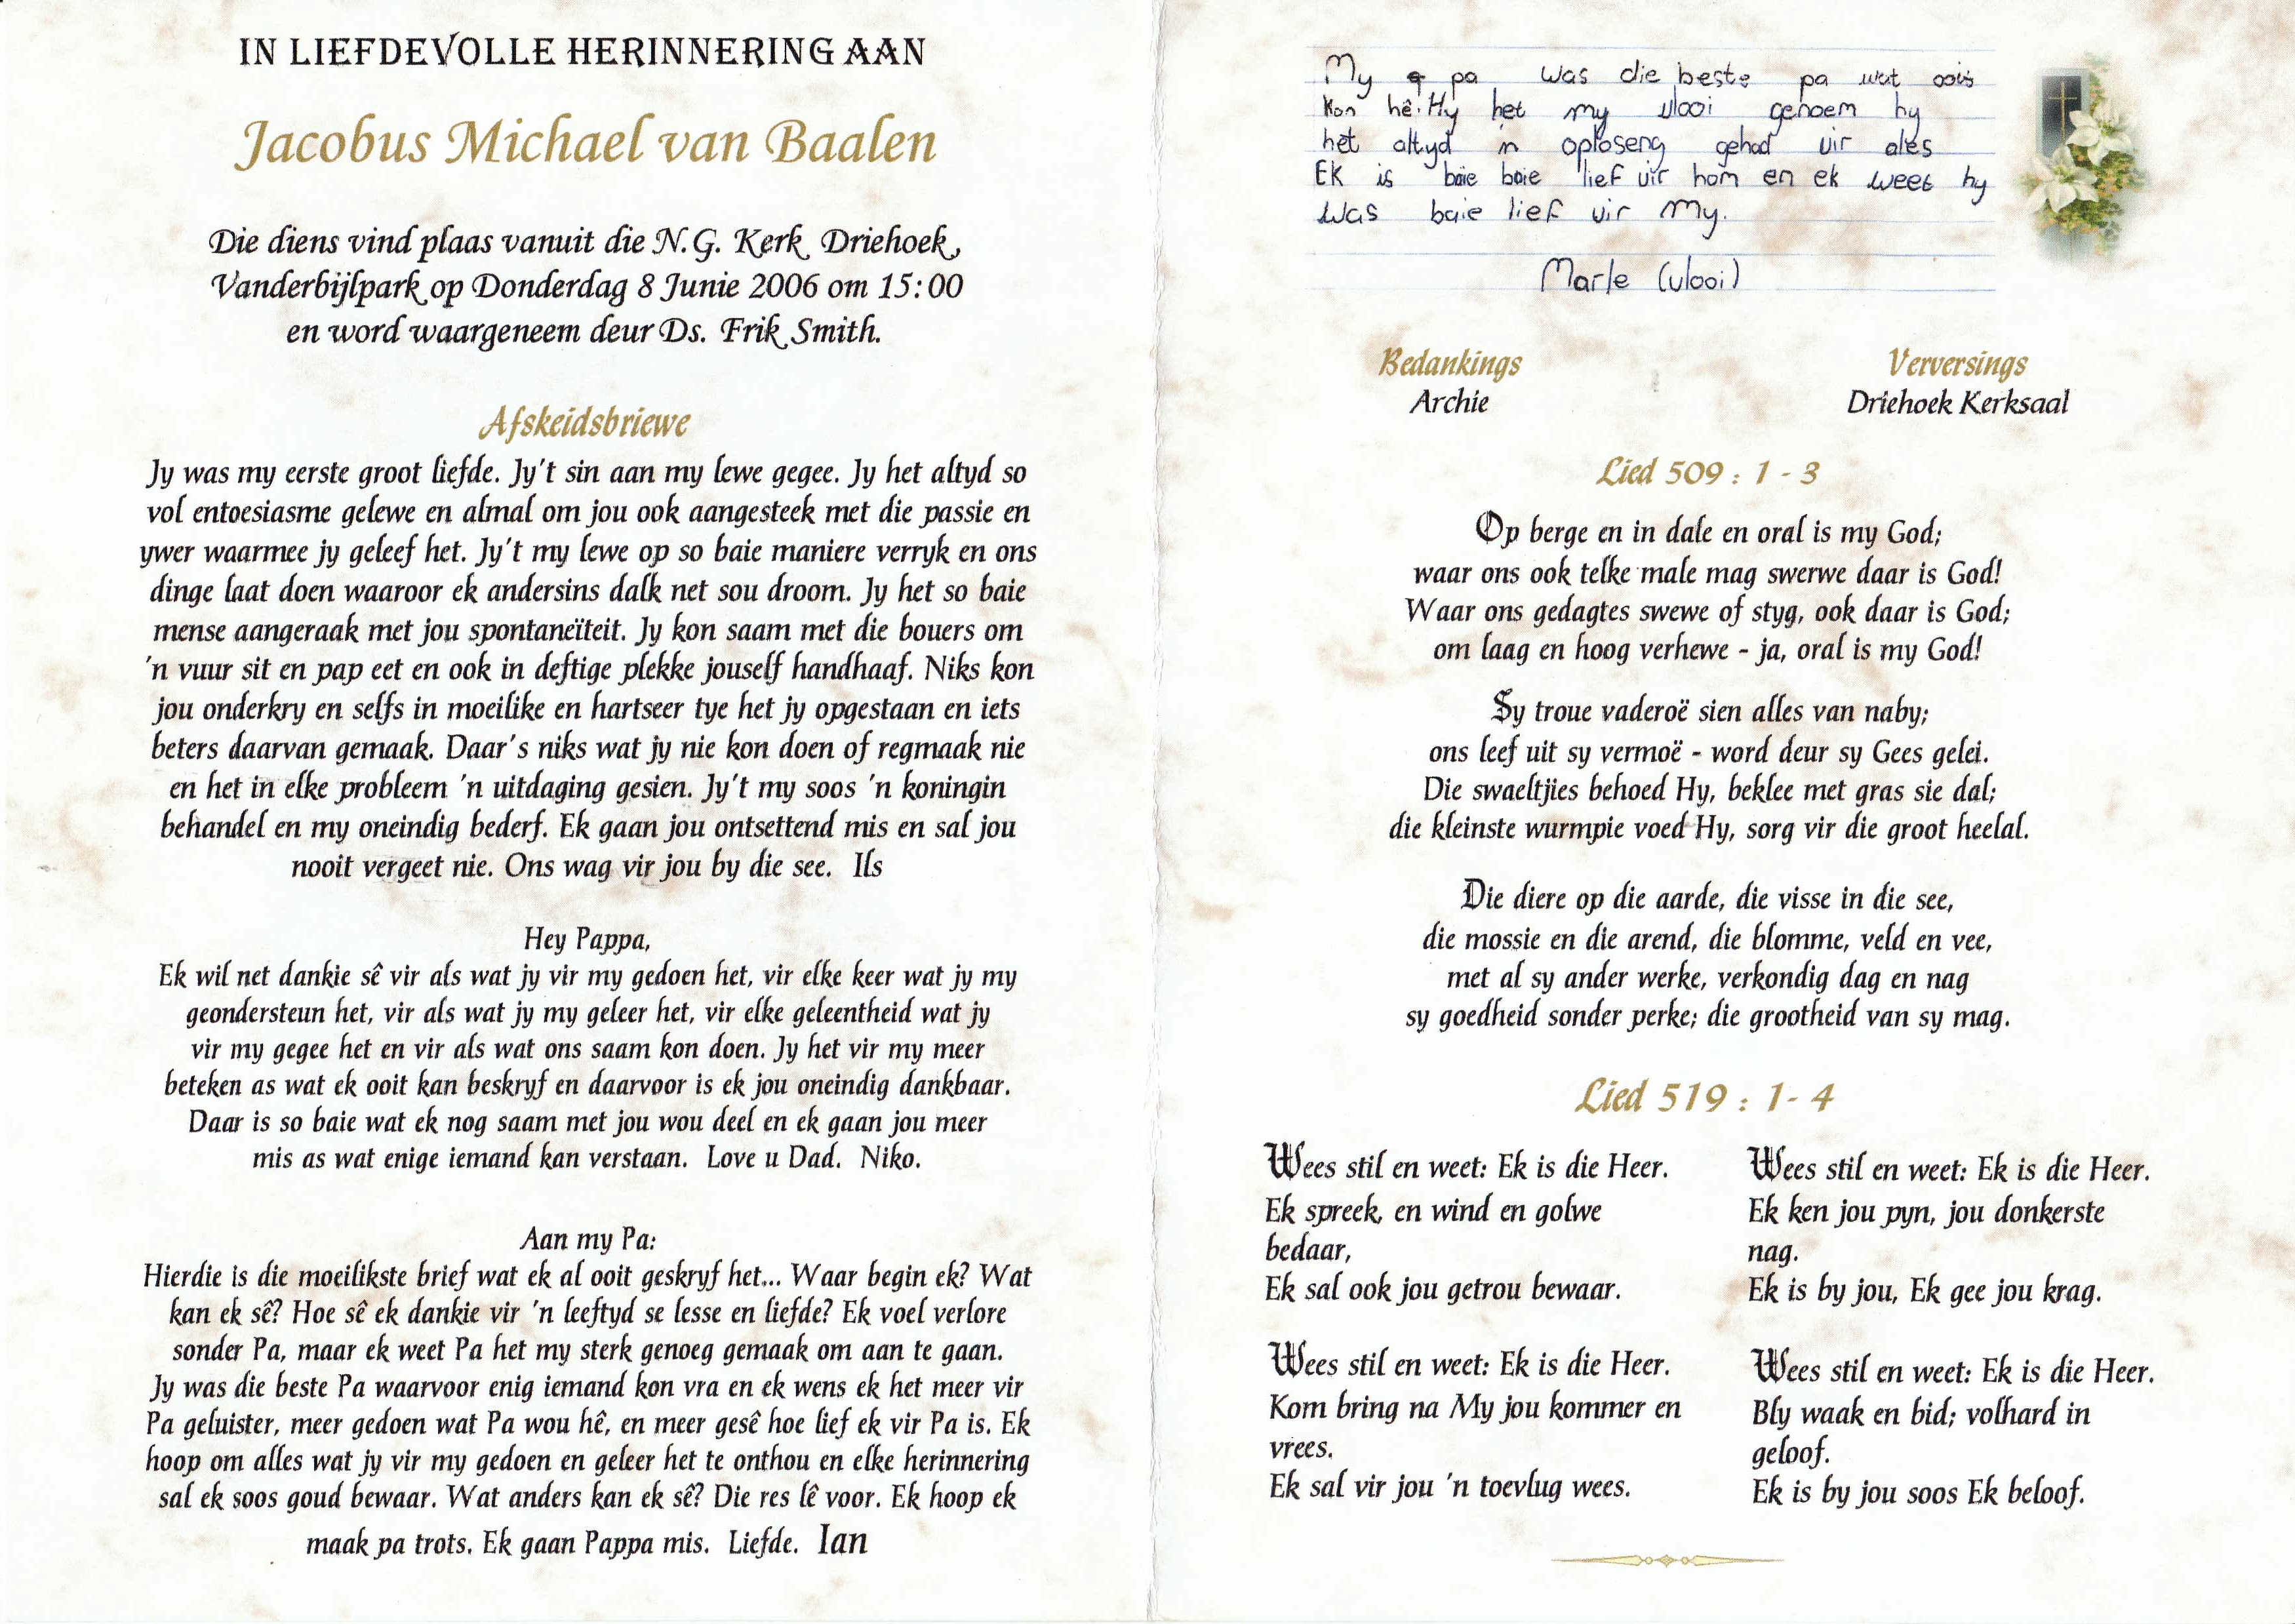 IN LIEFDEVOLLE HERINNERING AAN
Jacobus Michael van Baalen
Die diens vind plaas vanuit die N.G. Kerk Driehoek,
Vanderbijlpark op Donderdag 8 Junie 2006 om 15:00
en word waargeneem deur Ds. Frik Smith.
Afskeidsbriewe
Jy was my eerste groot liefde. Jy't sin aan my lewe gegee. Jy het altyd so
vol entoesiasme gelewe en almal om jou ook aangesteek met die passie en
ywer waarmee jy geleef het. Jy't my lewe op so baie maniere verryk en ons
dinge laat doen waaroor ek andersins dalk net sou droom. Jy het so baie
mense aangeraak met jou spontaneïteit. Jy kon saam met die bouers om
'n vuur sit en pap eet en ook in deftige plekke jouself handhaaf. Niks kon
jou onderkry en selfs in moeilike en hartseer tye het jy opgestaan en iets
beters daarvan gemaak. Daar's niks wat jy nie kon doen of regmaak nie
en het in elke probleem 'n uitdaging gesien. Jy't my soos 'n koningin
behandel en my oneindig bederf. Ek gaan jou ontsettend mis en sal jou
nooit vergeet nie. Ons wag vir jou by die see. Ils
Hey Pappa,
Ek wil net dankie sê vir als wat jy vir my gedoen het, vir elke keer wat jy my
geondersteun het, vir als wat jy my geleer het, vir elke geleentheid wat jy
vir my gegee het en vir als wat ons saam kon doen. Jy het vir my meer
beteken as wat ek ooit kan beskryf en daarvoor is ek jou oneindig dankbaar.
Daar is so baie wat ek nog saam met jou wou deel en ek gaan jou meer
mis as wat enige iemand kan verstaan. Love u Dad. Niko.
Aan my Pa:
Hierdie is die moeilikste brief wat ek al ooit geskryf het... Waar begin ek? Wat
kan ek sê? Hoe sê ek dankie vir 'n leeftyd se lesse en liefde? Ek voel verlore
sonder Pa, maar ek weet Pa het my sterk genoeg gemaak om aan te gaan.
Jy was die beste Pa waarvoor enig iemand kon vra en ek wens ek het meer vir
Pa geluister, meer gedoen wat Pa wou hê, en meer gesê hoe lief ek vir Pa is. Ek
hoop om alles wat jy vir my gedoen en geleer het te onthou en elke herinnering
sal ek soos goud bewaar. Wat anders kan ek sê? Die res lê voor. Ek hoop ek
maak pa trots. Ek gaan Pappa mis. Liefde. Ian
My pa was die beste pa wat oois
kon hê. Hy het my vlooi genoem hy
het altyd 'n oploseng gehad vir ales
Ek is baie baie lief vir hom en ek weet hy
was baie lief vir my.
Marle (vlooi)
Bedankings
Archie
Verversings
Driehoek Kerksaal
Lied 509 : 1 - 3
Op berge en in dale en oral is my God;
waar ons ook telke male mag swerwe daar is God!
Waar ons gedagtes swewe of styg, ook daar is God;
om laag en hoog verhewe - ja, oral is my God!
Sy troue vaderoë sien alles van naby;
ons leef uit sy vermoë - word deur sy Gees gelei.
Die swaeltjies behoed Hy, beklee met gras sie dal;
die kleinste wurmpie voed Hy, sorg vir die groot heelal.
Die diere op die aarde, die visse in die see,
die mossie en die arend, die blomme, veld en vee,
met al sy ander werke, verkondig dag en nag
sy goedheid sonder perke; die grootheid van sy mag.
Lied 519 : 1- 4
Wees stil en weet: Ek is die Heer.
Ek spreek, en wind en golwe
bedaar,
Ek sal ook jou getrou bewaar.
Wees stil en weet: Ek is die Heer.
Kom bring na My jou kommer en
vrees.
Ek sal vir jou 'n toevlug wees.
Wees stil en weet: Ek is die Heer.
Ek ken jou pyn, jou donkerste
nag.
Ek is by jou, Ek gee jou krag.
Wees stil en weet: Ek is die Heer.
Bly waak en bid; volhard in
geloof.
Ek is by jou soos Ek beloof.